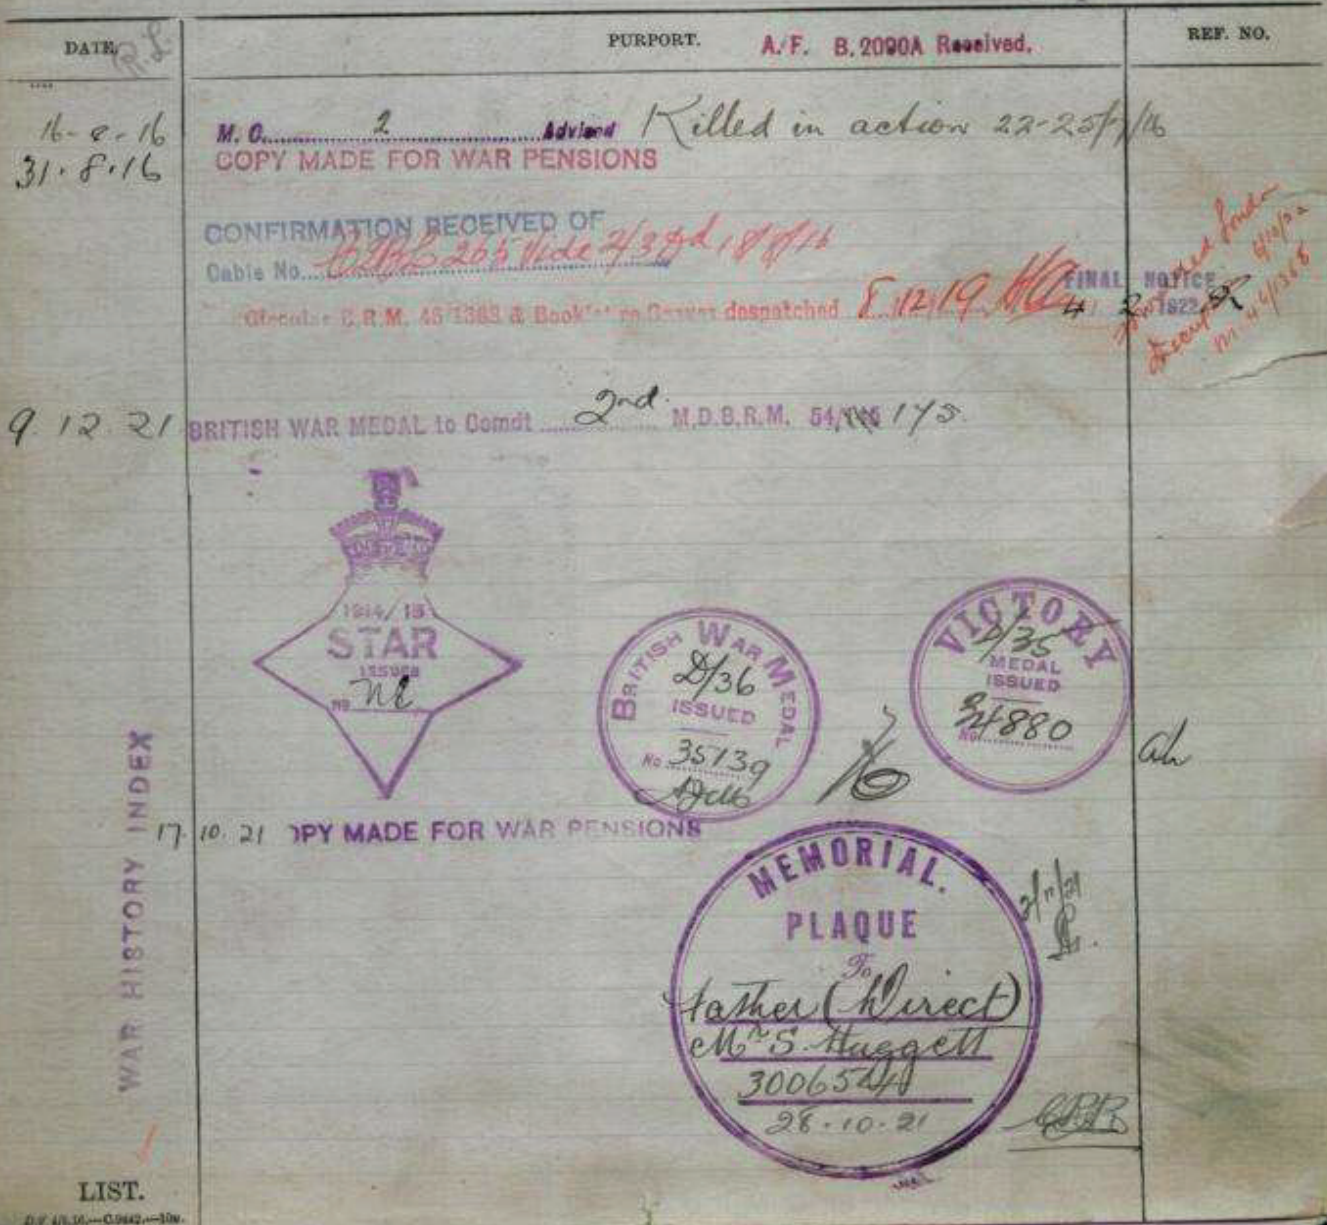 DATE. PURPORT. A.F. B.2090A Received. REF. NO.
16-8-16 M.C. 2 Advised Killed in action 22-25/7/16
31.8.16 COPY MADE FOR WAR PENSIONS
CONFIRMATION RECEIVED OF
Cable No. 265 Vide 2/3
Circular B.R.M. 45/1363 & despatched 8.12.19
FINAL NOTICE
4 2 1922
9.12.21 BRITISH WAR MEDAL to Comdt 2nd. M.D.B.R.M. 54/ 175
1914/15
STAR
ISSUED
NO
BRITISH WAR MEDAL
D/36
ISSUED
No 35139
VICTORY
D/35
MEDAL
ISSUED
No 34880
ah
17.10.21 OPY MADE FOR WAR PENSIONS
WAR HISTORY INDEX
MEMORIAL.
PLAQUE
To
Father (Direct)
Mr S. Huggett
300654
28.10.21
LIST.